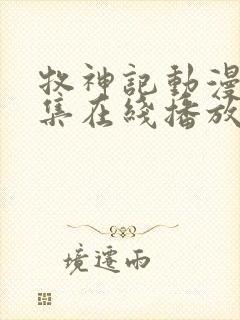 牧神記動漫
集在綫播放
境遷雨